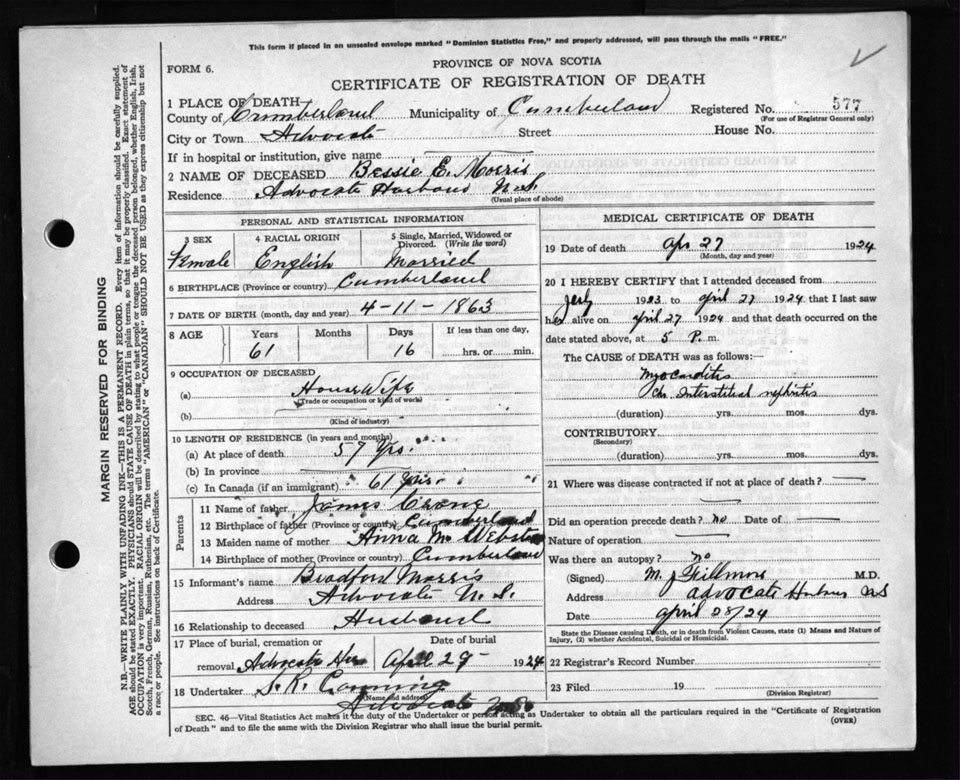 This form if placed in an unsealed envelope marked "Dominion Statistics Free," and properly addressed, will pass through the mails "FREE."
PROVINCE OF NOVA SCOTIA
FORM 6.
CERTIFICATE OF REGISTRATION OF DEATH
1 PLACE OF DEATH
County of Cumberland Municipality of Cumberland Registered No. 577
(For use of Registrar General only)
City or Town Advocate Street House No.
If in hospital or institution, give name
2 NAME OF DECEASED Bessie E. Morris
Residence Advocate Harbour N.S.
(Usual place of abode)
PERSONAL AND STATISTICAL INFORMATION
3 SEX 4 RACIAL ORIGIN 5 Single, Married, Widowed or Divorced. (Write the word)
Female English Married
6 BIRTHPLACE (Province or country) Cumberland
7 DATE OF BIRTH (month, day and year) 4-11-1863
8 AGE Years Months Days If less than one day,
61 16 hrs. or min.
9 OCCUPATION OF DECEASED
(a) House Wife
(Trade or occupation or kind of work)
(b)
(Kind of industry)
10 LENGTH OF RESIDENCE (in years and months)
(a) At place of death 57 Yrs.
(b) In province " " "
(c) In Canada (if an immigrant) 61 yrs
Parents
11 Name of father James Crane
12 Birthplace of father (Province or country) Cumberland
13 Maiden name of mother Anna M. Webster
14 Birthplace of mother (Province or country) Cumberland
15 Informant's name Bradford Morris
Address Advocate N.S.
16 Relationship to deceased Husband
17 Place of burial, cremation or removal Advocate Date of burial April 29 1924
18 Undertaker S. R.
(Name and address)
Advocate
MEDICAL CERTIFICATE OF DEATH
19 Date of death Apr 27 1924
(Month, day and year)
20 I HEREBY CERTIFY that I attended deceased from
1923 to april 27 1924 that I last saw
her alive on april 27 1924 and that death occurred on the
date stated above, at 5 P. m.
The CAUSE of DEATH was as follows:
Myocarditis
Chr. Interstitial nephritis
(duration) yrs. mos. dys.
CONTRIBUTORY
(Secondary)
(duration) yrs. mos. dys.
21 Where was disease contracted if not at place of death?
Did an operation precede death? No Date of
Nature of operation
Was there an autopsy? no
(Signed) M. J. Fillmore M.D.
Address advocate NS
Date april 28/24
State the Disease causing Death, or in death from Violent Causes, state (1) Means and Nature of Injury, (2) whether Accidental, Suicidal or Homicidal.
22 Registrar's Record Number
23 Filed 19
(Division Registrar)
SEC. 46—Vital Statistics Act makes it the duty of the Undertaker or person acting as Undertaker to obtain all the particulars required in the "Certificate of Registration
of Death" and to file the same with the Division Registrar who shall issue the burial permit. (OVER)
MARGIN RESERVED FOR BINDING
N.B.—WRITE PLAINLY WITH UNFADING INK—THIS IS A PERMANENT RECORD. Every item of information should be carefully supplied.
AGE should be stated EXACTLY. PHYSICIANS should STATE CAUSE OF DEATH in plain terms, so that it may be properly classified. Exact statement of
OCCUPATION is very important. RACIAL ORIGIN will be described by stating to what people or tongue the deceased person belonged, whether English, Irish,
Scotch, French, German, Russian, Ruthenian, etc. The terms "AMERICAN" or "CANADIAN" SHOULD NOT BE USED as they express citizenship but not
a race or people. See instructions on back of Certificate.